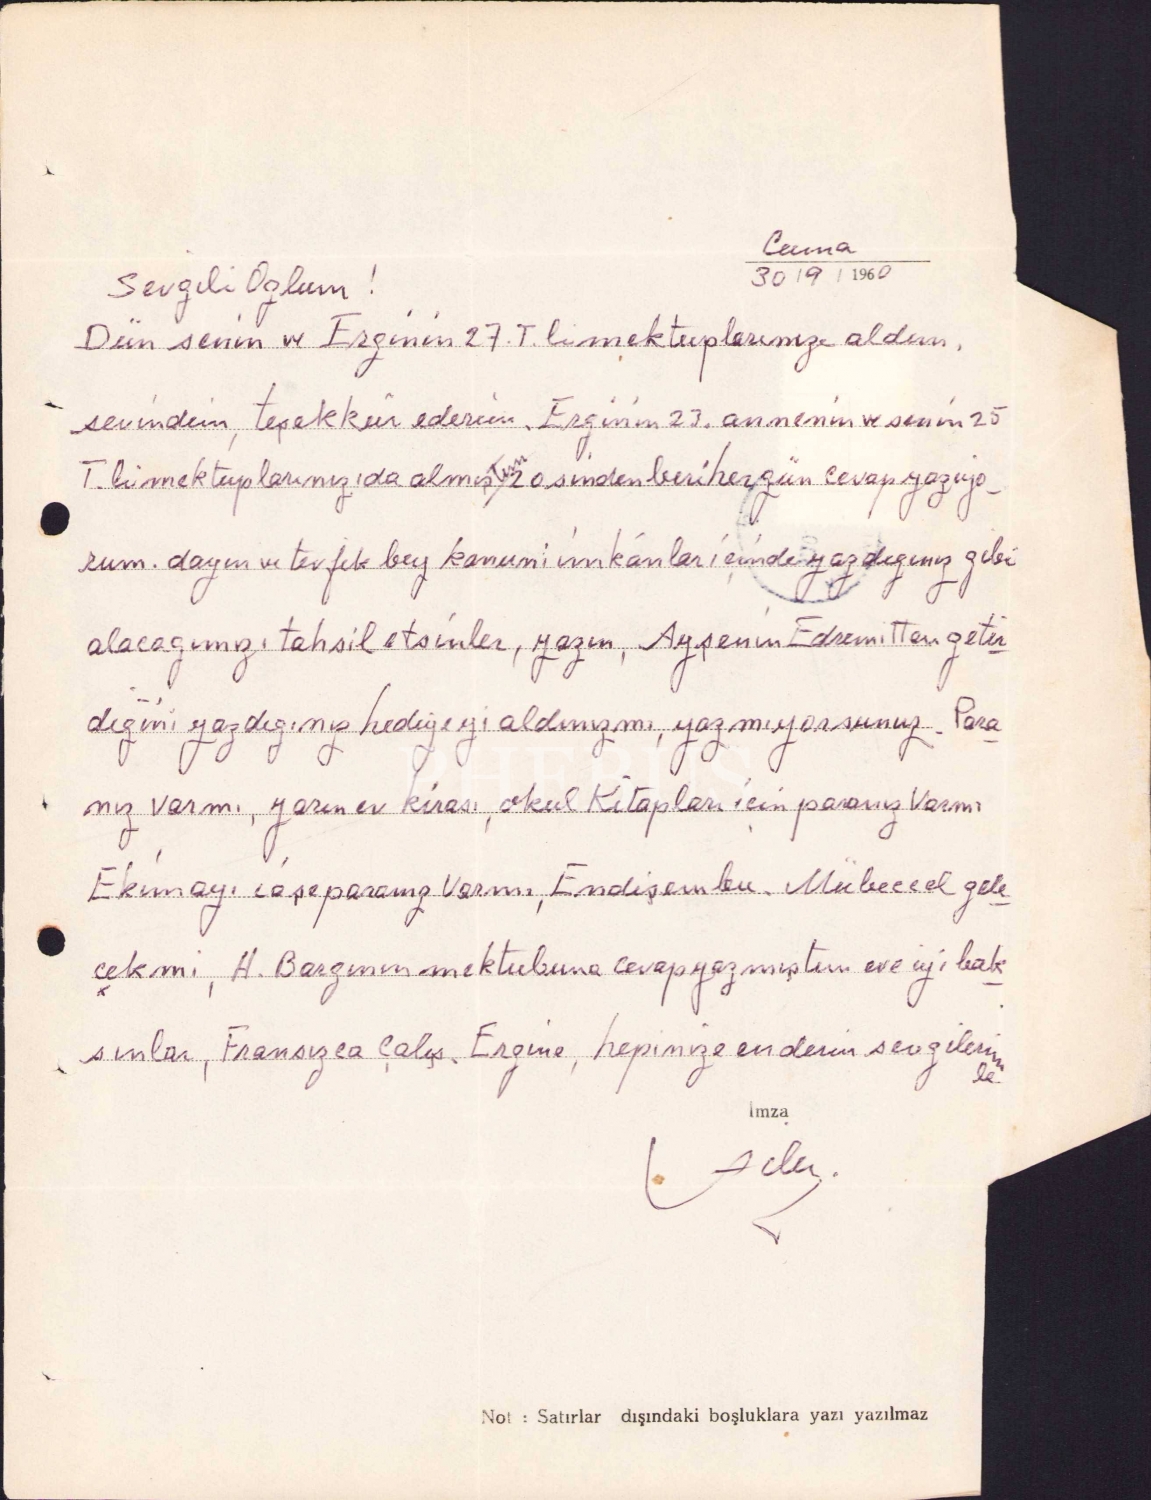 Cuma
30/9/1960
Sevgili Oğlum!
Dün senin ve Erginin 27.T.li mektuplarınızı aldım.
sevindim, teşekkür ederim. Erginin 23. annenin ve senin 25
T.li mektuplarınızıda almış 20 sindenberi hergün cevap yazıyo_
rum. dayın ve tevfik bey kanuni imkânlar içinde yazdıgınız gibi
alacagımızı tahsil etsinler, yazın, Ayşenin Edremitten getir
diğini yazdıgınız hediyeyi aldınızmı, yazmıyorsunuz. Para
nız varmı, yarın ev kirası, okul Kitapları için paranız Varmı
Ekim ayı iaşe paranız Varmı, Endişem bu. Mübeccel gele
çekmi, H. Bargının mektubuna cevap yazmıştım eve iyi bak
sınlar, Fransızca Çalış. Ergine, hepinize en derin sevgilerim
le
İmza
PHEBUS
Not : Satırlar dışındaki boşluklara yazı yazılmaz